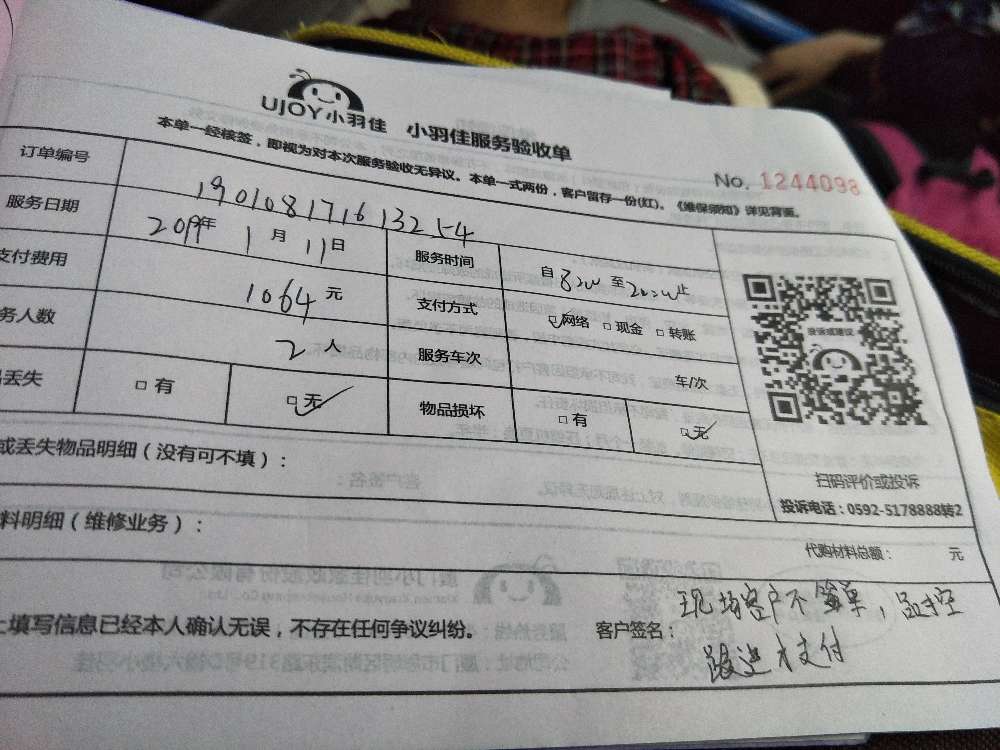 UJOY小羽佳 小羽佳服务验收单
No. 1244098
本单一经核签，即视为对本次服务验收无异议。本单一式两份，客户留存一份(红)。《维保须知》详见背面。
订单编号 190108171613
服务日期 2019年 1月 11日 服务时间 自 至 止
支付费用 1064 元 支付方式 网络 □ 现金 □ 转账
务人数 2 人 服务车次 车/次
丢失 □ 有 □ 无 物品损坏 □ 有 □ 无
投诉或建议
扫码评价或投诉
投诉电话：0592-5178888转2
或丢失物品明细（没有可不填）：
料明细（维修业务）：
代购材料总额： 元
上填写信息已经本人确认无误，不存在任何争议纠纷。
客户签名： 现场客户不签单，
跟进才支付